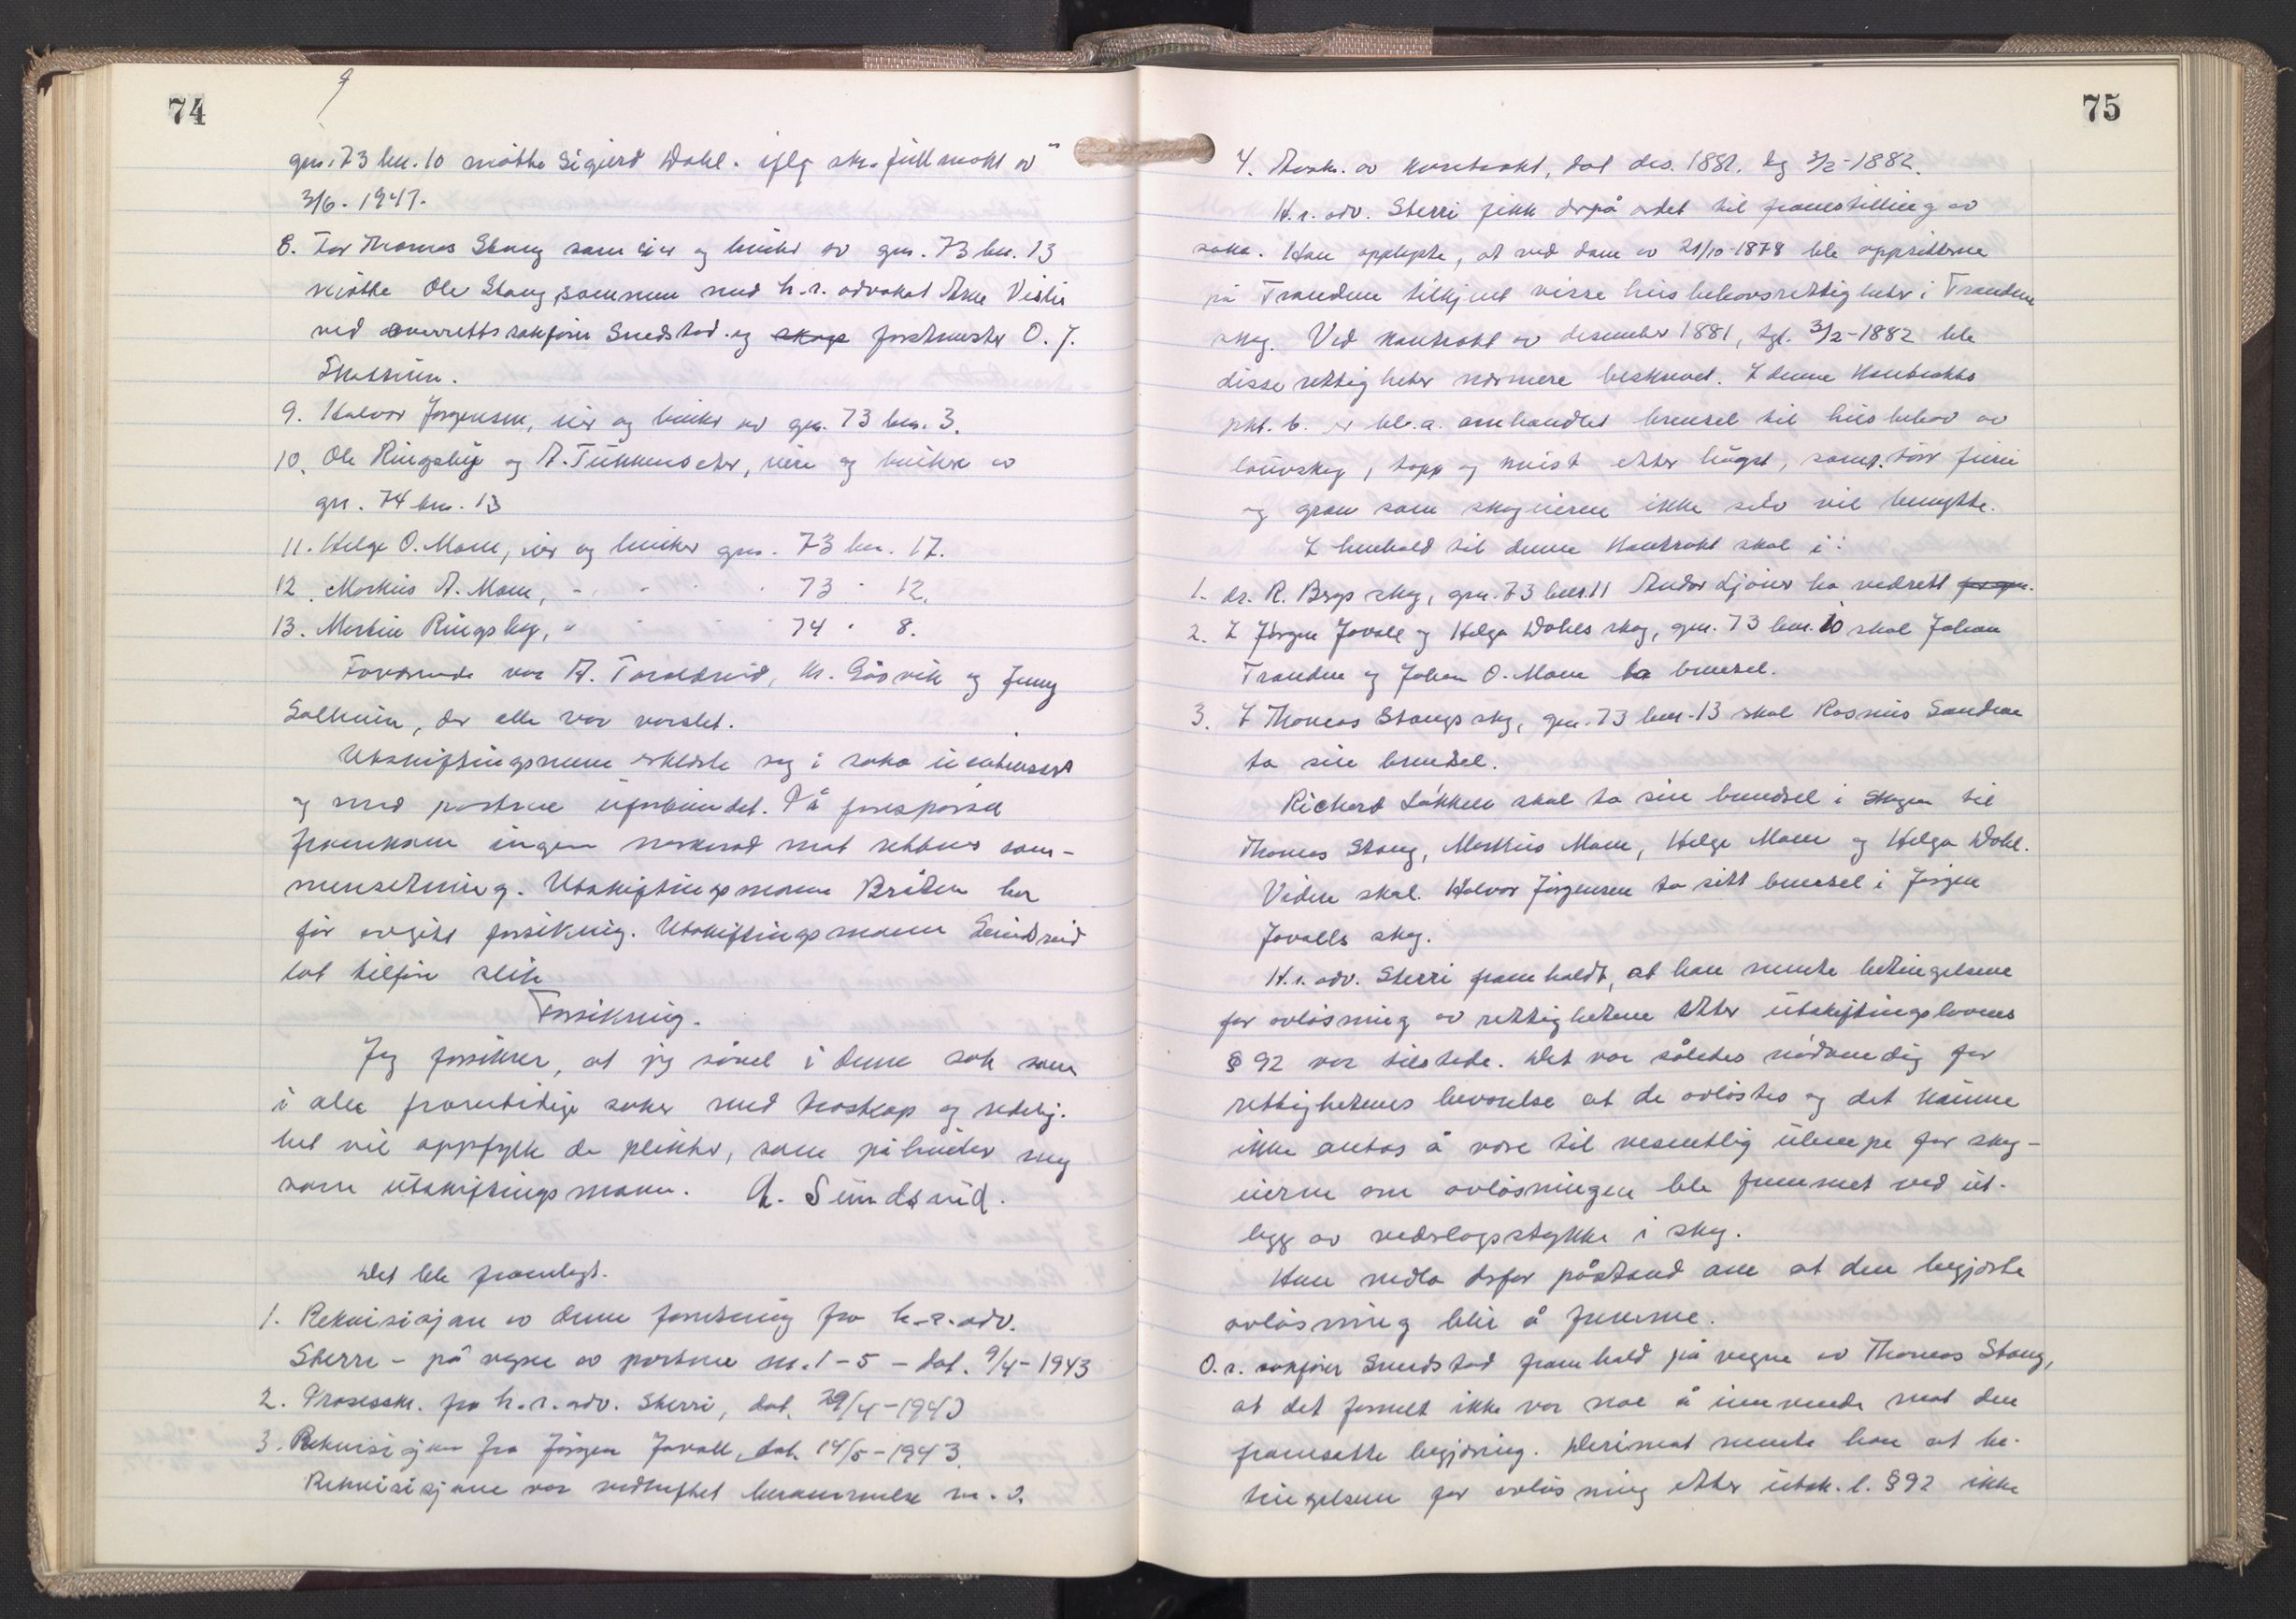 74
gnr. 73 bnr. 10 møtte Sigurd Dahl. iflg skr. fullmakt av
3/6. 1947.
8. For Thomas Stang som eier og bruker av gnr. 73 bnr. 13
møtte Ole Stang sammen med h.r. advokat Arne Vislie
ved overrettssakfører Sundstad og skogs forstmester O. J.
9. Halvor Jørgensen, eier og bruker av gnr. 73 bnr. 3.
10. Ole Ringsby og A. , eiere og brukere av
gnr. 74 bnr. 13
11. Helge O. Moen, eier og bruker gnr. 73 bnr. 17.
12. Markus A. Moen, " " " " 73 " 12.
13. Martin Ringsby, " " " " 74 " 8.
Forøvrende var A. , Kr. og Jenny
Solheim, der alle var varslet.
Utskiftingsmennene erklærte seg i saka uinteressert
og med partene uforbundet. På forespørsel
framkom ingen merknad mot rettens sam-
mensetning. Utskiftingsmann Bråten har
før avgitt forsikring. Utskiftingsmann Sundsrud
lot tilføre slik
Forsikring.
Jeg forsikrer, at jeg såvel i denne sak som
i alle framtidige saker med troskap og redelig-
het vil oppfylle de plikter, som påhviler meg
som utskiftingsmann. A. Sundsrud.
Det ble framlagt.
1. Rekvisisjon av denne forretning fra h.r. adv.
Sterri - på vegne av partene nr. 1 - 5 - dat. 9/4 - 1943
2. Prosesskr. fra h.r. adv. Sterri, dat. 29/4 - 1943
3. Rekvisisjon fra Jørgen Jovall, dat. 14/5 - 1943.
Rekvisisjone var vedheftet berammelse m. v.
75
4. Avskr. av kontrakt, dat des. 1881. tg 3/2 - 1882.
H.r. adv. Sterri fikk derpå ordet til framstilling av
saka. Han opplyste, at ved dom av 21/10 - 1878 ble oppsitterne
på Tranden tilkjent visse husbehovsrettigheter i Tranden
skog. Ved kontrakt av desember 1881, tgl. 3/2 - 1882 ble
disse rettigheter nærmere beskrevet. I denne kontrakts
pkt. b. er bl.a. omhandlet brensel til husbehov av
lauvskog, topp og kvist etter hugst, samt tørr furu
og gran som skogeierne ikke selv vil benytte.
I henhold til denne kontrakt skal i:
1. dr. R. Bergs skog, gnr. 73 bnr. 11 Andor Ljøner ha vedrett
2. I Jørgen Jovall og Helga Dahls skog, gnr. 73 bnr. 10 skal Johan
Tranden og Johan O. Moen ta brensel.
3. I Thomas Stangs skog, gnr. 73 bnr. 13 skal Rasmus Sandene
ta sin brensel.
Richard Løkken skal ta sin brensel i skogen til
Thomas Stang, Markus Moen, Helge Moen og Helga Dahl.
Videre skal Halvor Jørgensen ta sitt brensel i Jørgen
Jovalls skog.
H.r. adv. Sterri framholdt, at han mente betingelsene
for avløsning av rettighetene etter utskiftingslovens
§ 92 var tilstede. Det var således nødvendig for
rettighetenes bevarelse at de avløstes og det kunne
ikke antas å være til vesentlig ulempe for skog-
eierne om avløsningen ble fremmet ved ut-
legg av vederlagsstykke i skog.
Han nedla derfor påstand om at den begjærte
avløsning blir å fremme.
O.r. sakfører Sundstad framhold på vegne av Thomas Stang,
at det formelt ikke var noe å innvende mot den
framsatte begjæring. Derimot mente han at be-
tingelsene for avløsning etter utsk. l. § 92 ikke